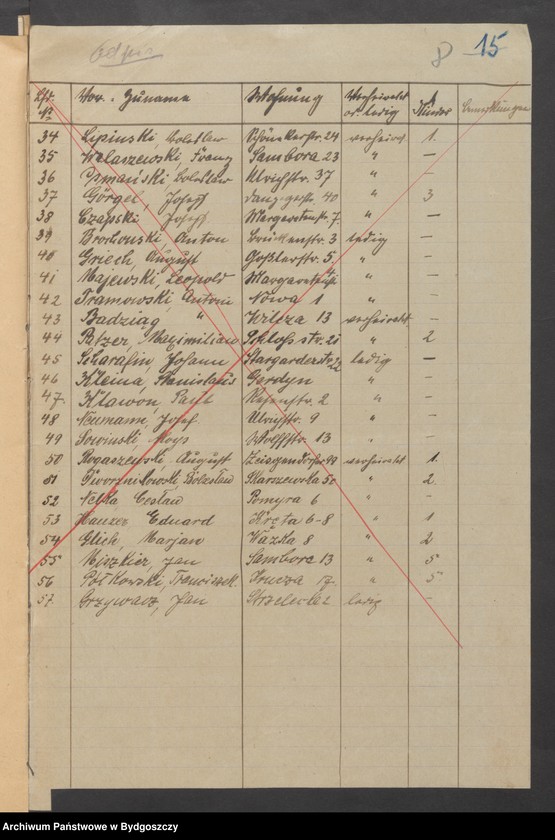 Odpis
8 15
Lfd. No Vor. Zuname Wohnung Verheiratet od. ledig Kinder Bemerkungen
34 Lipinski, Boleslaw 24 verheirat. 1.
35 Welaszewski, Franz Sambora 23 " —
36 Boleslaw Ulrichstr. 37 " —
37 Görgel, Josef 40 " 3
38 Czapski Josef Margaretenstr. 7 " —
39 Brochowski Anton Brückenstr. 3 ledig —
40 Griech, August Goßlerstr. 5. " —
41 Majewski, Leopold " —
42 Tramowski, Antoni Nowa 1 " —
43 Badziąg " Wilcza 13 verheiratet —
44 Patzer, Maximilian Schloßstr. 21 " 2
45 Scharafin, Johann Stargarderstr. ledig —
46 Klema, Stanislaus Gerdyn " —
47. Klawon, Paul 2 " —
48 Neumann, Josef Ulrichstr. 9 " —
49 Sowinski Wolffstr. 13 " —
50 Rogaszewski, August verheiratet 1.
51 Skarszewska 50 " 2.
52 Nelka Cesław Pomyra 6 " —
53 Hauzer Eduard Kręta 6-8 " 1
54 Glich, Marjan Wązka 8 " 2
55 Jan Sambora 13 " 5
56 Półkowski, Franciszek Krucza 17 " 5
57 Grzywacz, Jan Strzelecka 2 ledig —
Archiwum Państwowe w Bydgoszczy